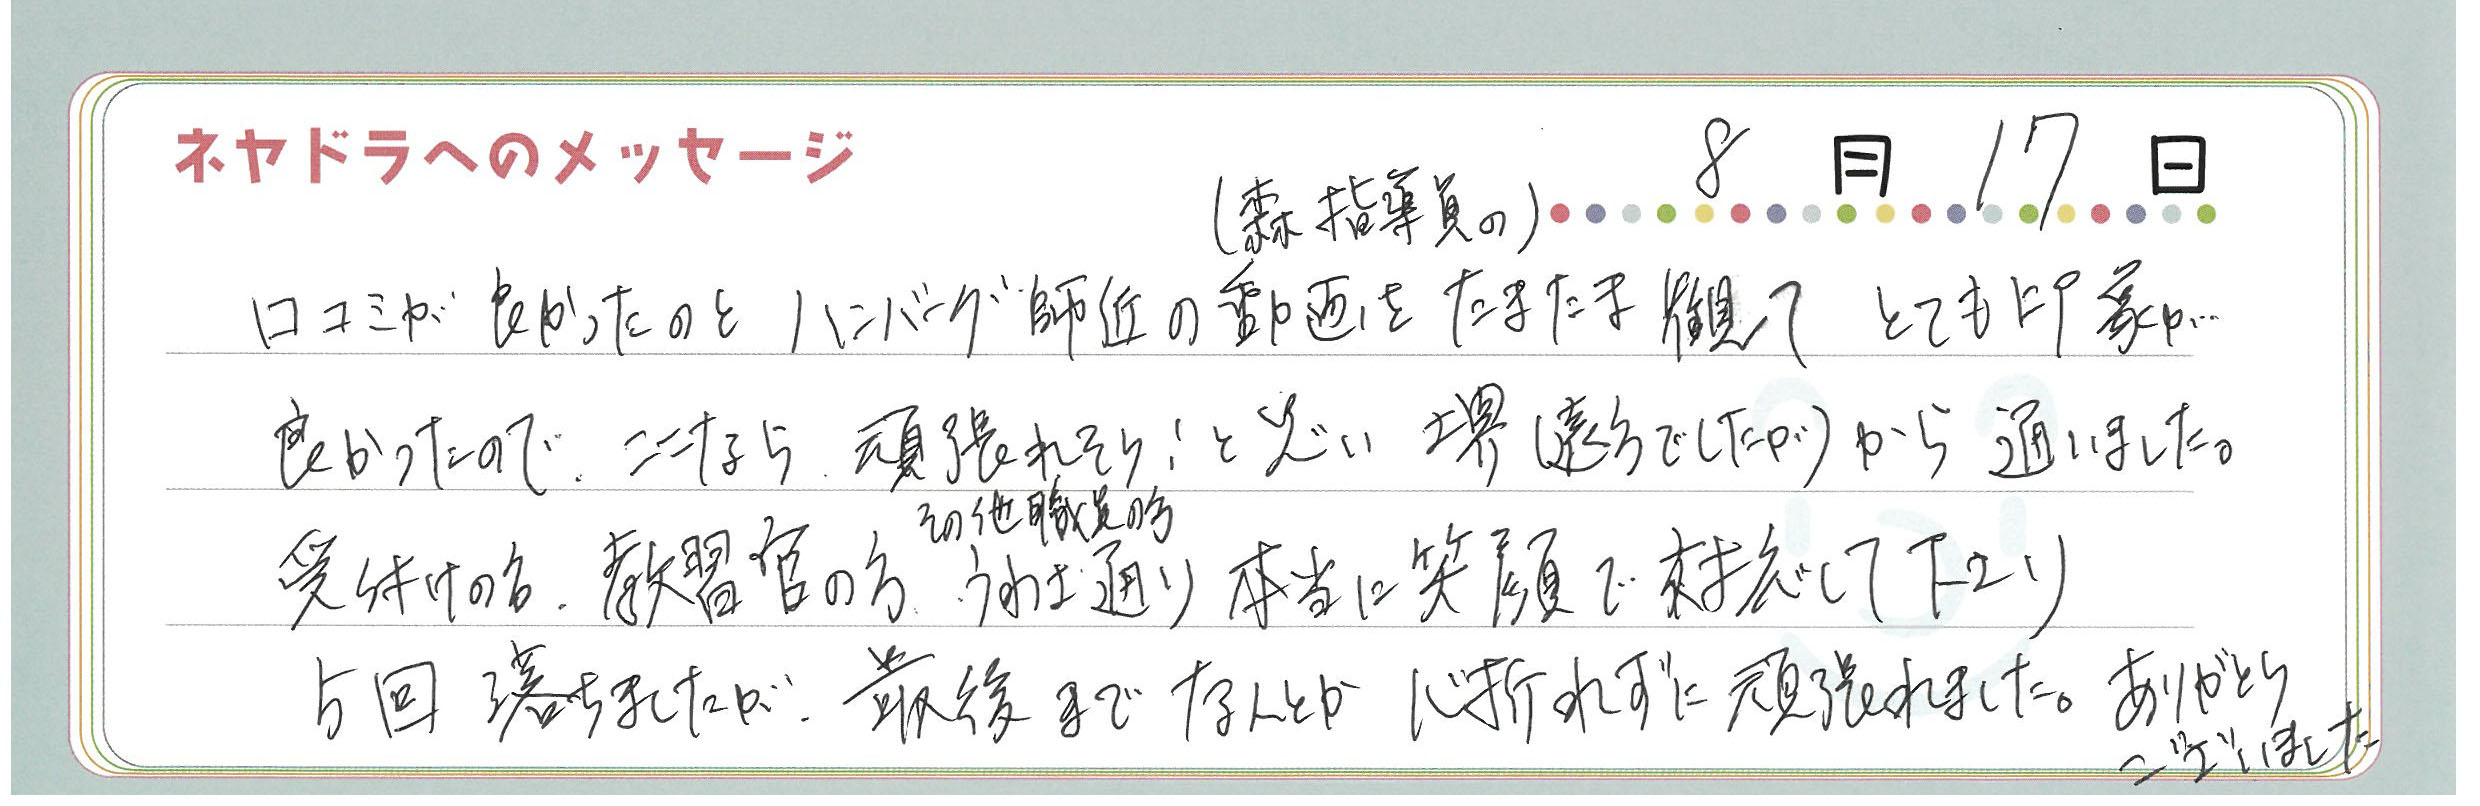 ネヤドラへのメッセージ
8月17日
(森指導員の)
口コミが良かったのとハンバーグ師匠の動画をたまたま観てとても印象が
良かったので、ここなら、頑張れそう!と思い堺(遠方でしたが)から通いました。
その他職員の方
受付けの方、教習官の方、うわさ通り本当に笑顔で対応して下さり
5回落ちましたが、最後までなんとか心折れずに頑張れました。ありがとう
ございました